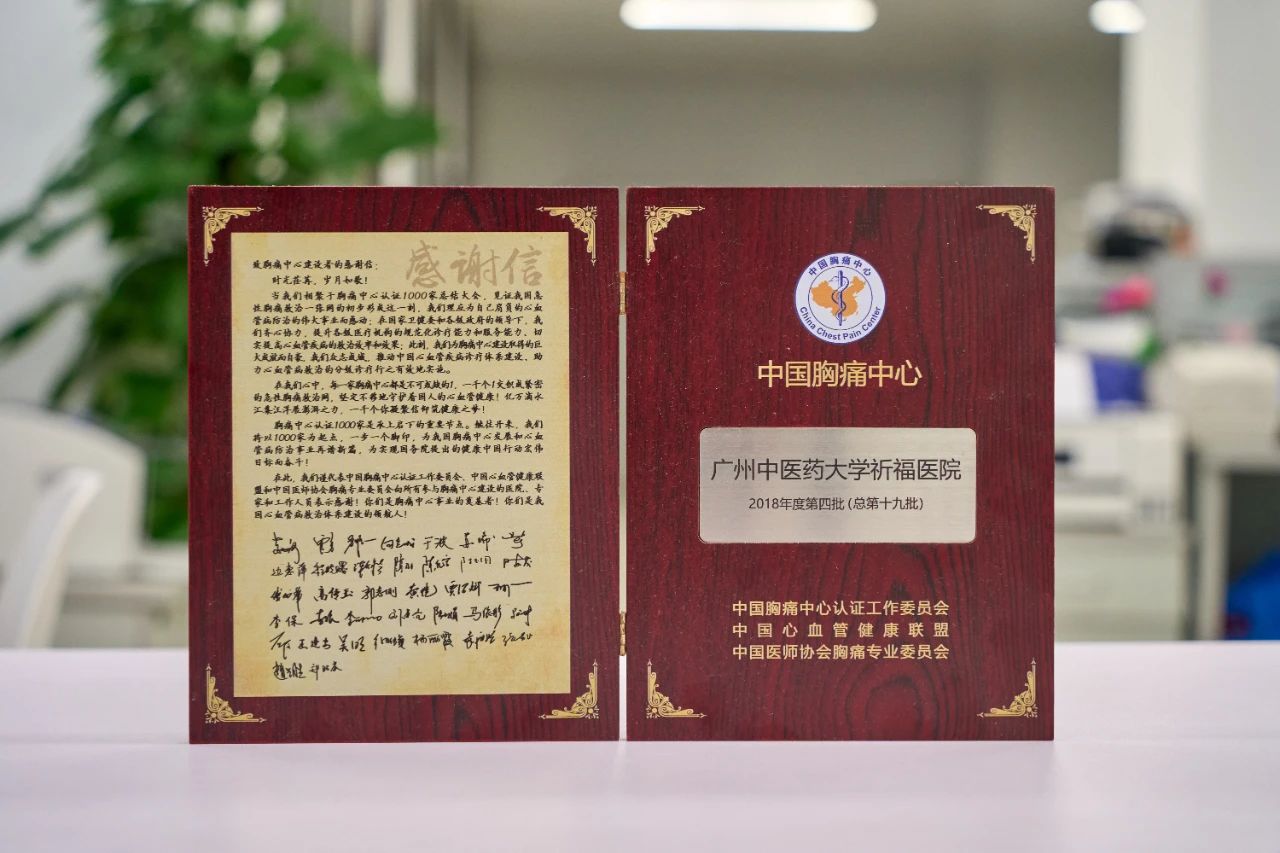 感谢信
致胸痛中心建设者的感谢信：
时光荏苒，岁月如歌！
当我们相聚于胸痛中心认证1000家总结大会，见证我国急
性胸痛救治一张网的初步形成这一刻，我们理应为自己所负的心血
管病防治的伟大事业而感动：在国家卫健委和各级政府的领导下，我
们齐心协力，提升各级医疗机构的规范化诊疗能力和服务能力，切
实提高心血管疾病的救治效率和效果；此刻，我们为胸痛中心建设取得的巨
大成就而自豪，我们众志成城，推动中国心血管疾病诊疗体系建设，助
力心血管疾病救治的分级诊疗行之有效地实施。
在我们心中，每一家胸痛中心都是不可或缺的1，一千个1交织成紧密
的急性胸痛救治网，坚定不移地守护着国人的心血管健康！亿万滴水
江集江洋展澎湃之力，一千个你凝聚信仰筑健康之梦！
胸痛中心认证1000家是承上启下的重要节点。继往开来，我们
将以1000家为起点，一步一个脚印，为我国胸痛中心发展和心血
管病防治事业再谱新篇，为实现国务院提出的健康中国行动宏伟
目标而奋斗！
在此，我们谨代表中国胸痛中心认证工作委员会、中国心血管健康联
盟和中国医师协会胸痛专业委员会向所有参与胸痛中心建设的医院、专
家和工作人员表示感谢！你们是胸痛中心事业的奠基者！你们是我
国心血管病救治体系建设的领航人！
中国胸痛中心
China Chest Pain Center
中国胸痛中心
广州中医药大学祈福医院
2018年度第四批(总第十九批)
中国胸痛中心认证工作委员会
中国心血管健康联盟
中国医师协会胸痛专业委员会